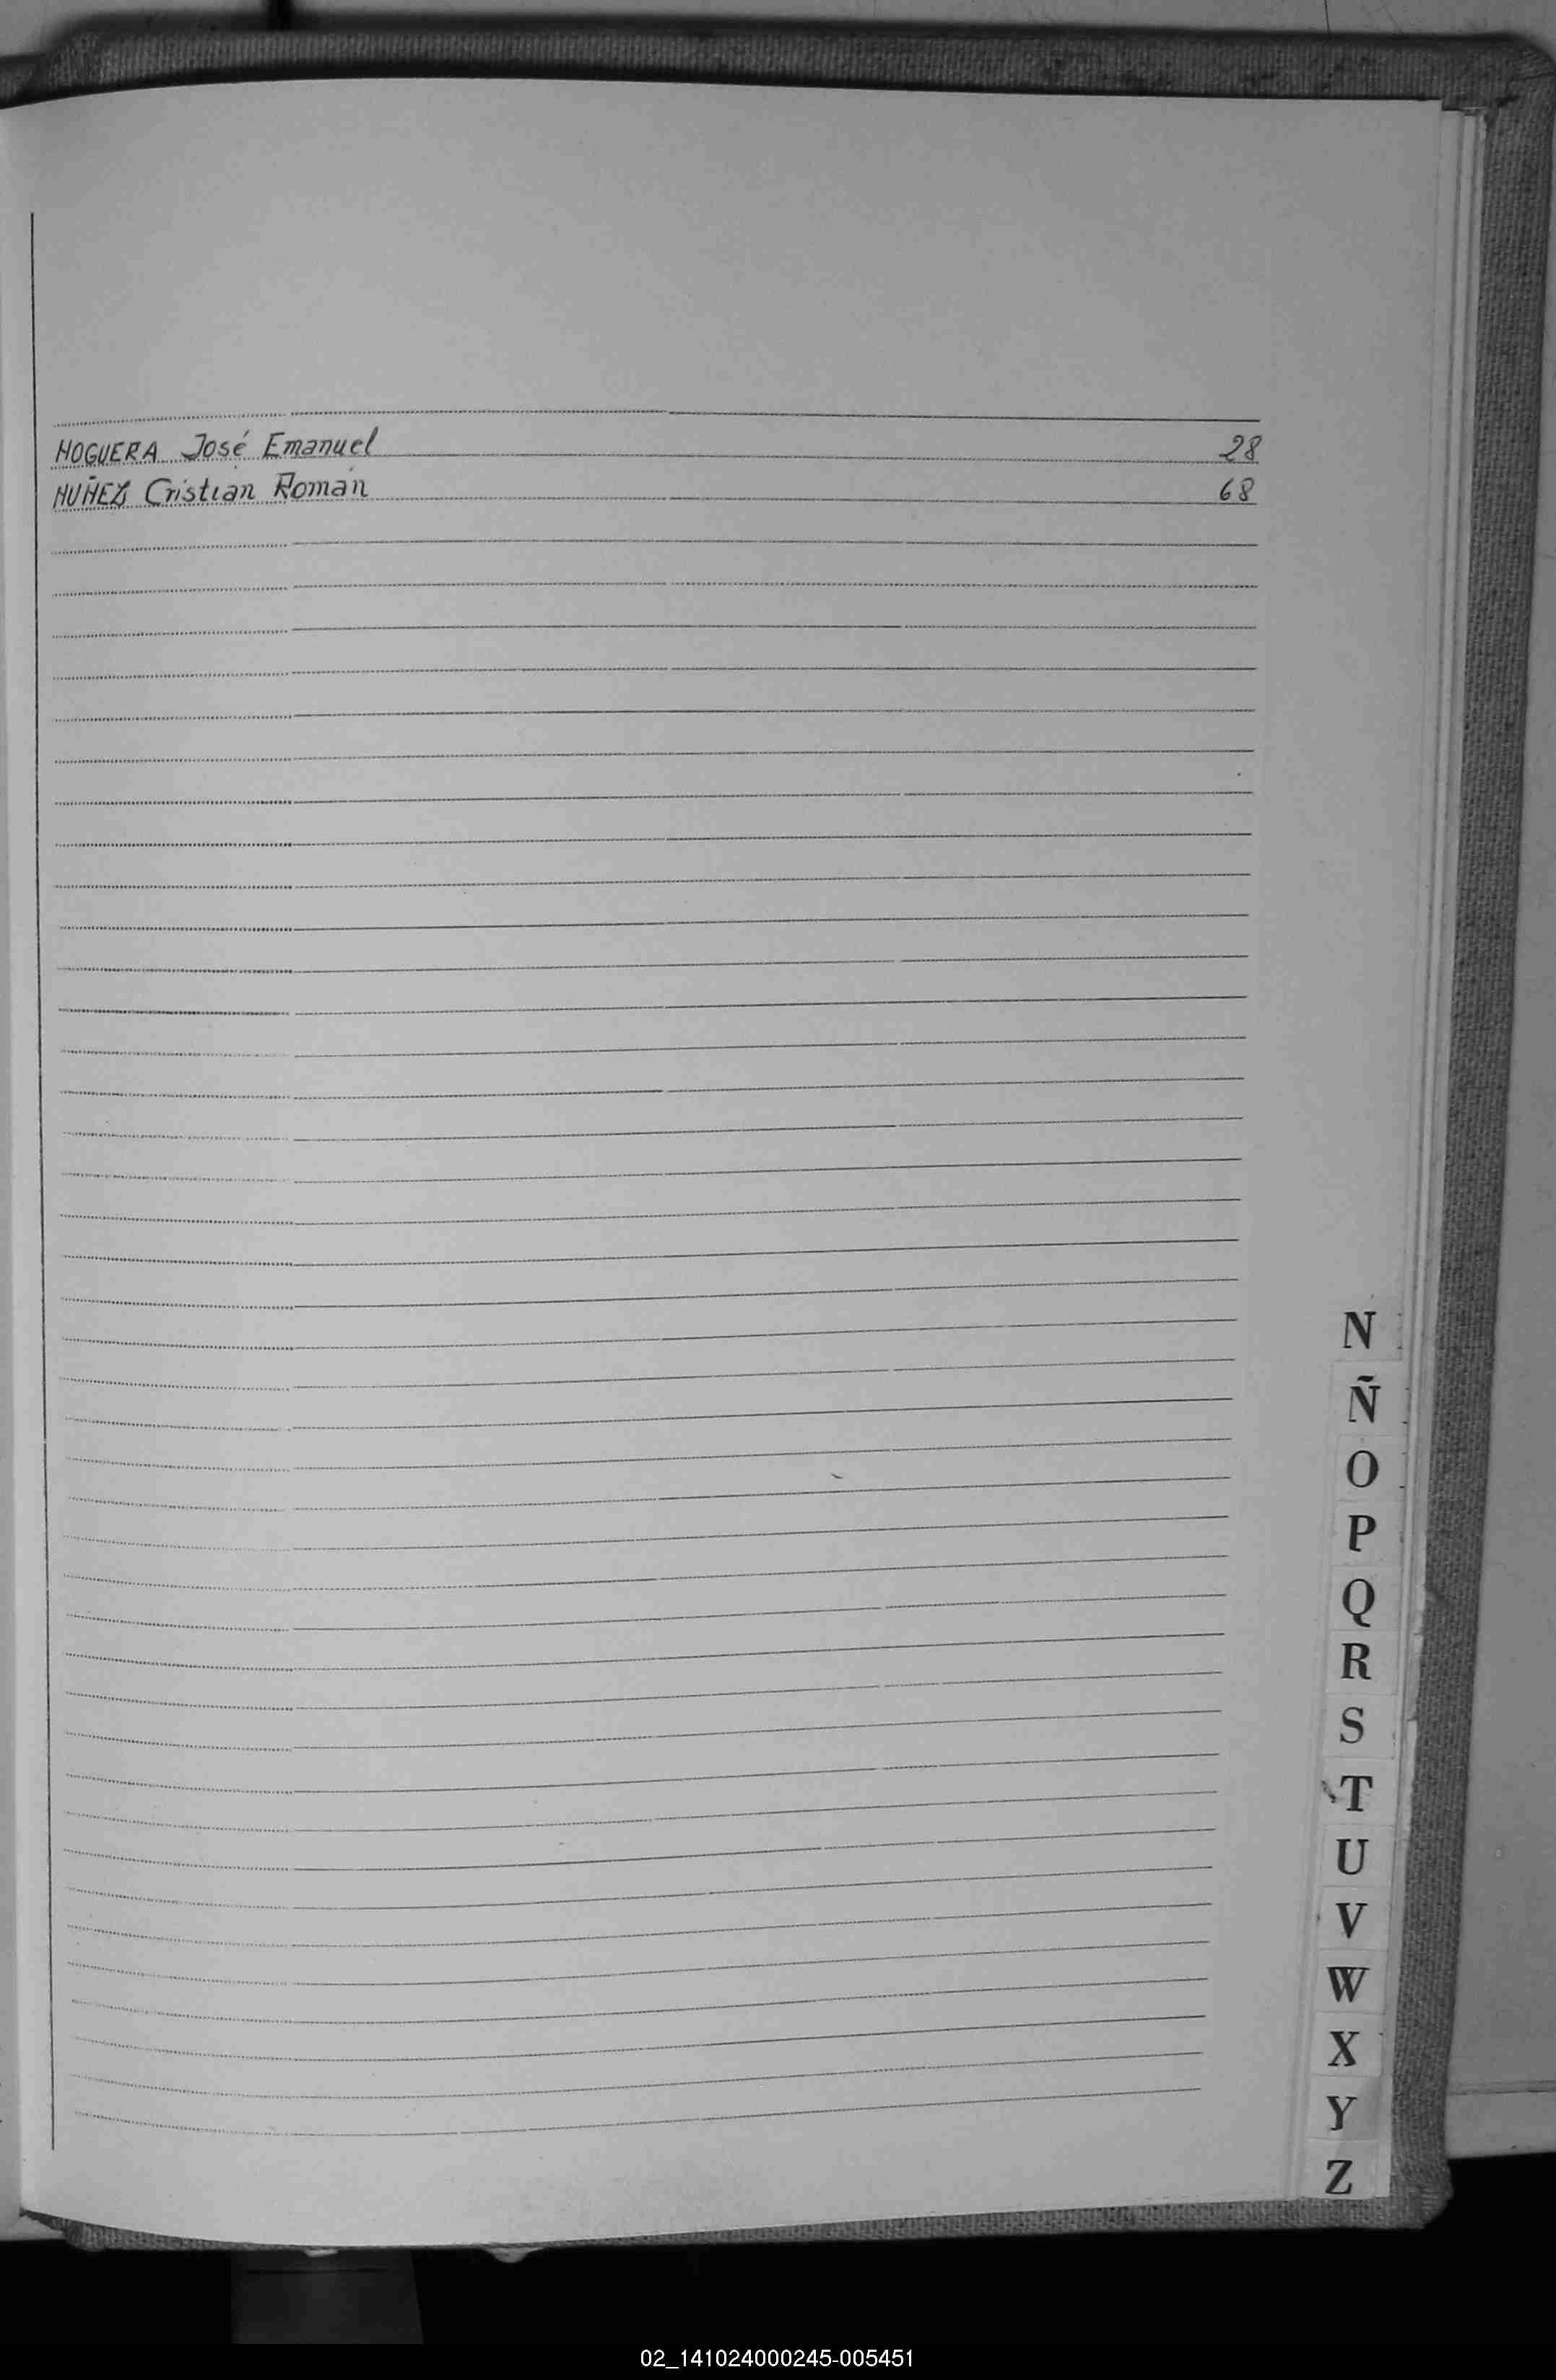 NOGUERA José Emanuel 28
NUÑEZ Cristian Román 68
N
Ñ
O
P
Q
R
S
T
U
V
W
X
Y
Z
02_141024000245-005451